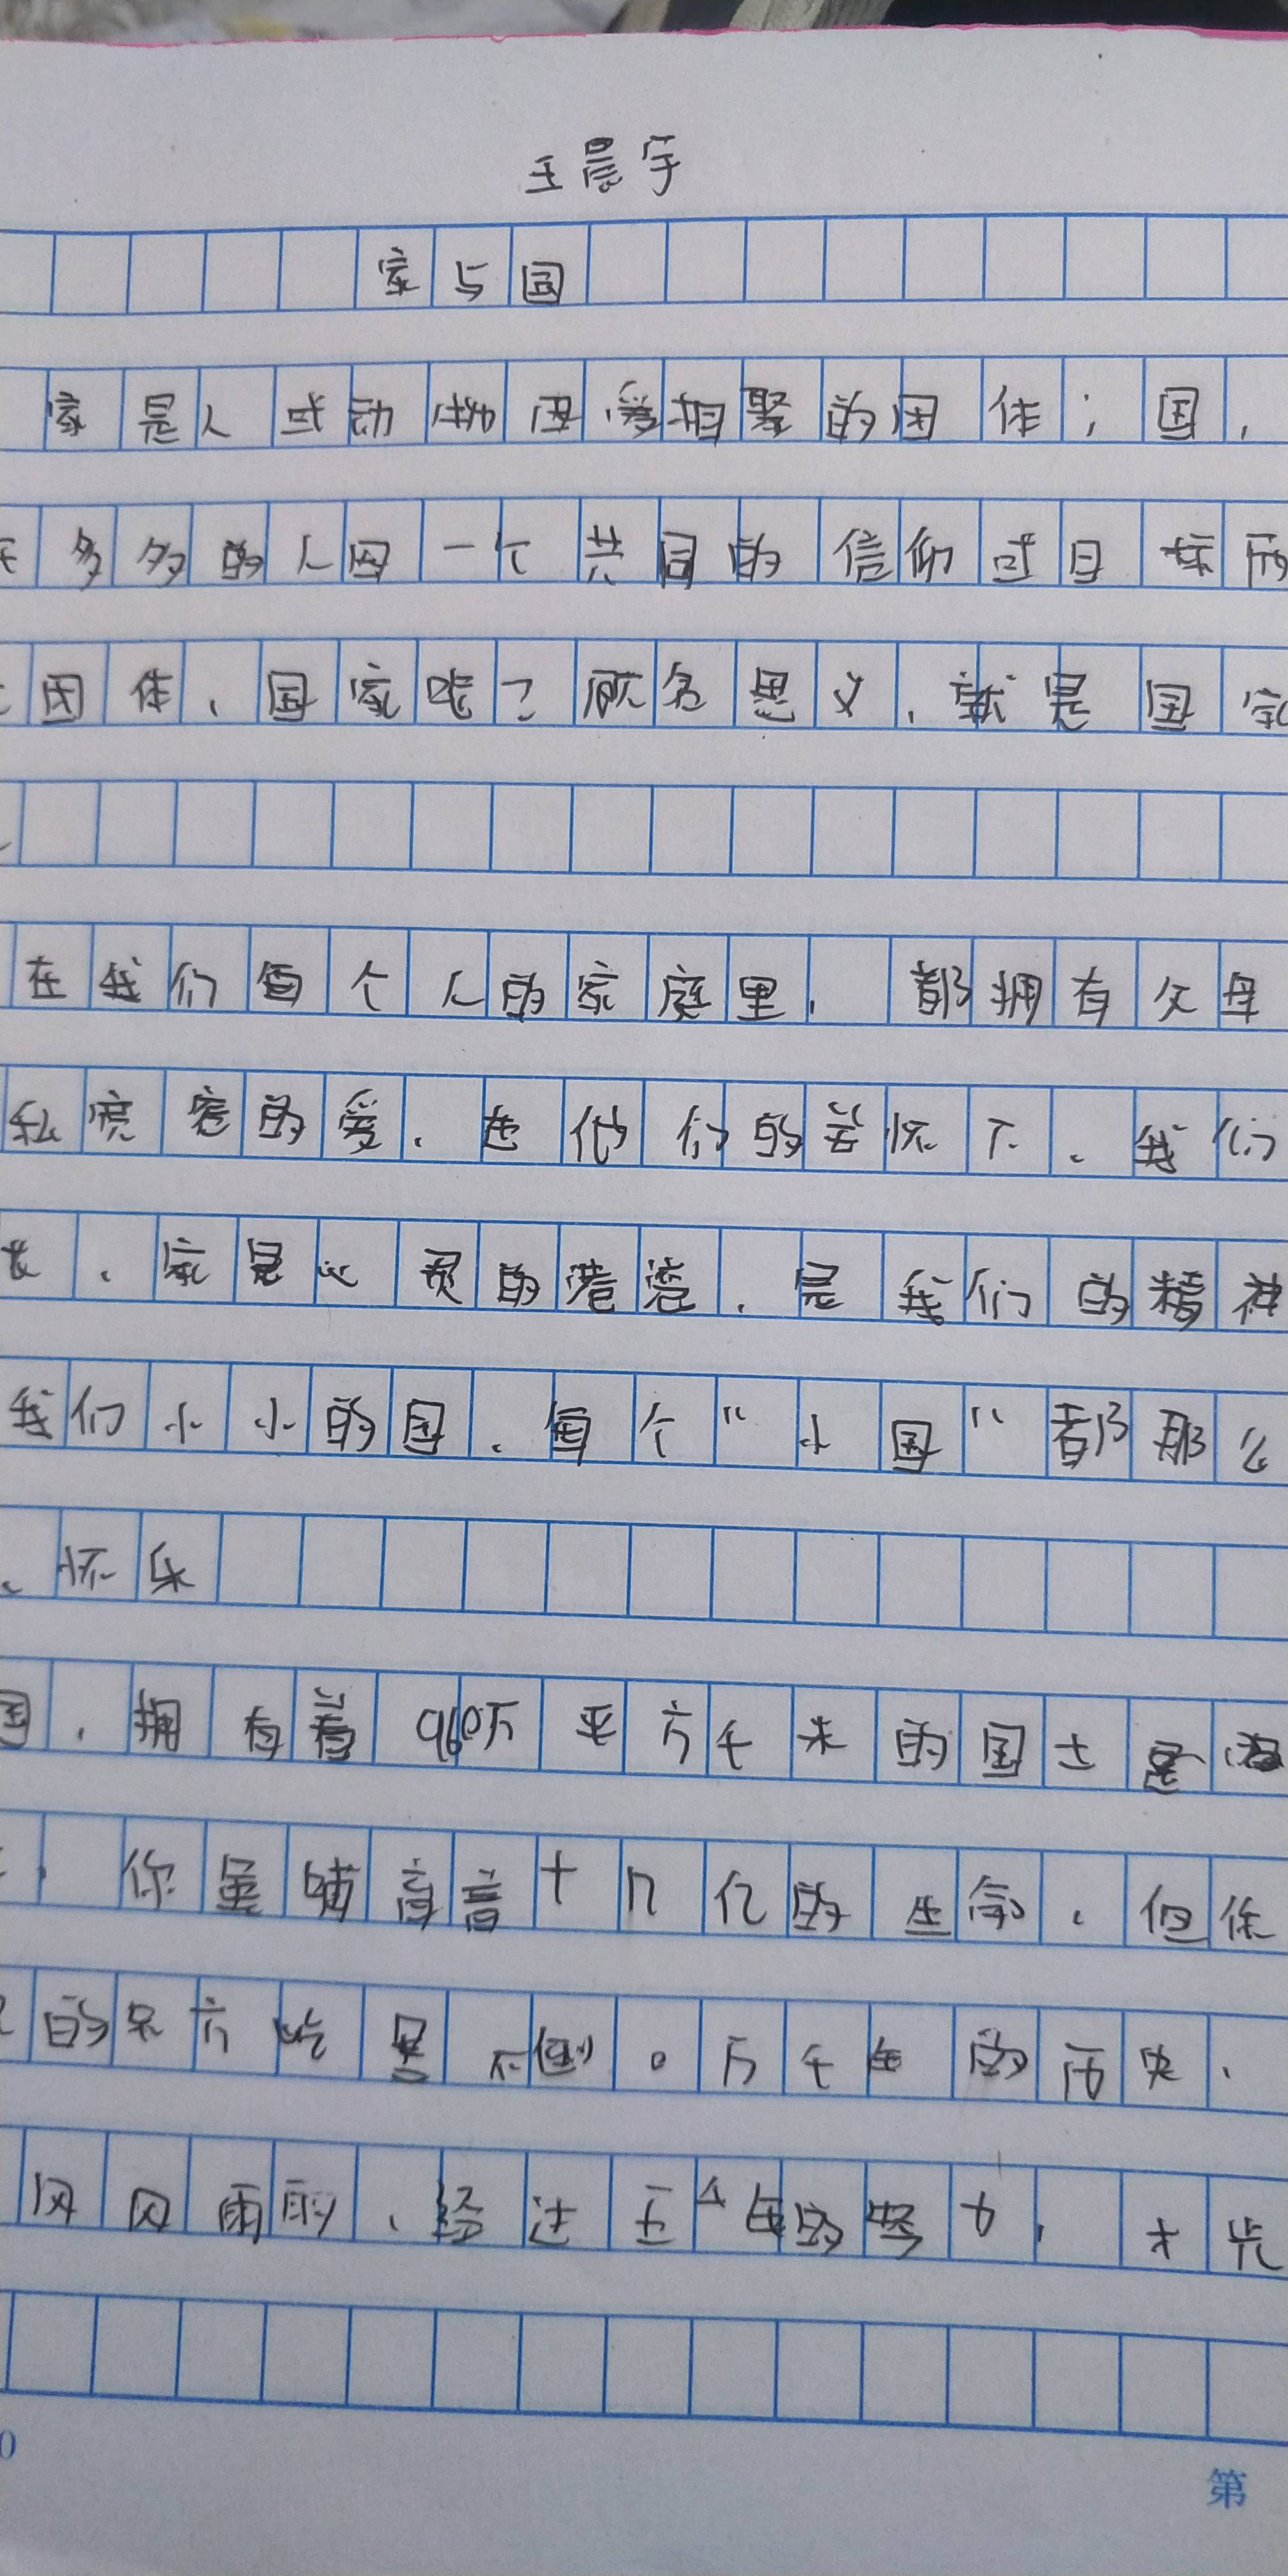 王晨宇
家与国
家是人或动物因爱相聚的团体；国，
多多的人因一个共同的信仰或目标所
团体，国家呢？顾名思义，就是国家
在我们每个人的家庭里，都拥有父母
私宽容的爱，在他们的关怀下，我们
长，家是心灵的港湾，是我们的精神
我们小小的国，每个"小国"都那么
、怀乐
国，拥有着960万平方千米的国土
，你虽哺育着十几亿的生命，但你
的东方屹
不倒。万千年的历史，
风风雨雨，经过五千年的努力，才
第